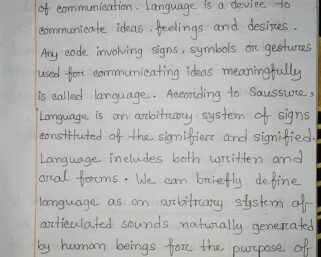 of communication. Language is a device to
communicate ideas, feelings and desires.
Any code involving signs, symbols or gestures
used for communicating ideas meaningfully
is called language. According to Saussure,
Language is an arbitrary system of signs
constituted of the signifiers and signified.
Language includes both written and
oral forms. We can briefly define
language as an arbitrary system of
articulated sounds naturally generated
by human beings for the purpose of